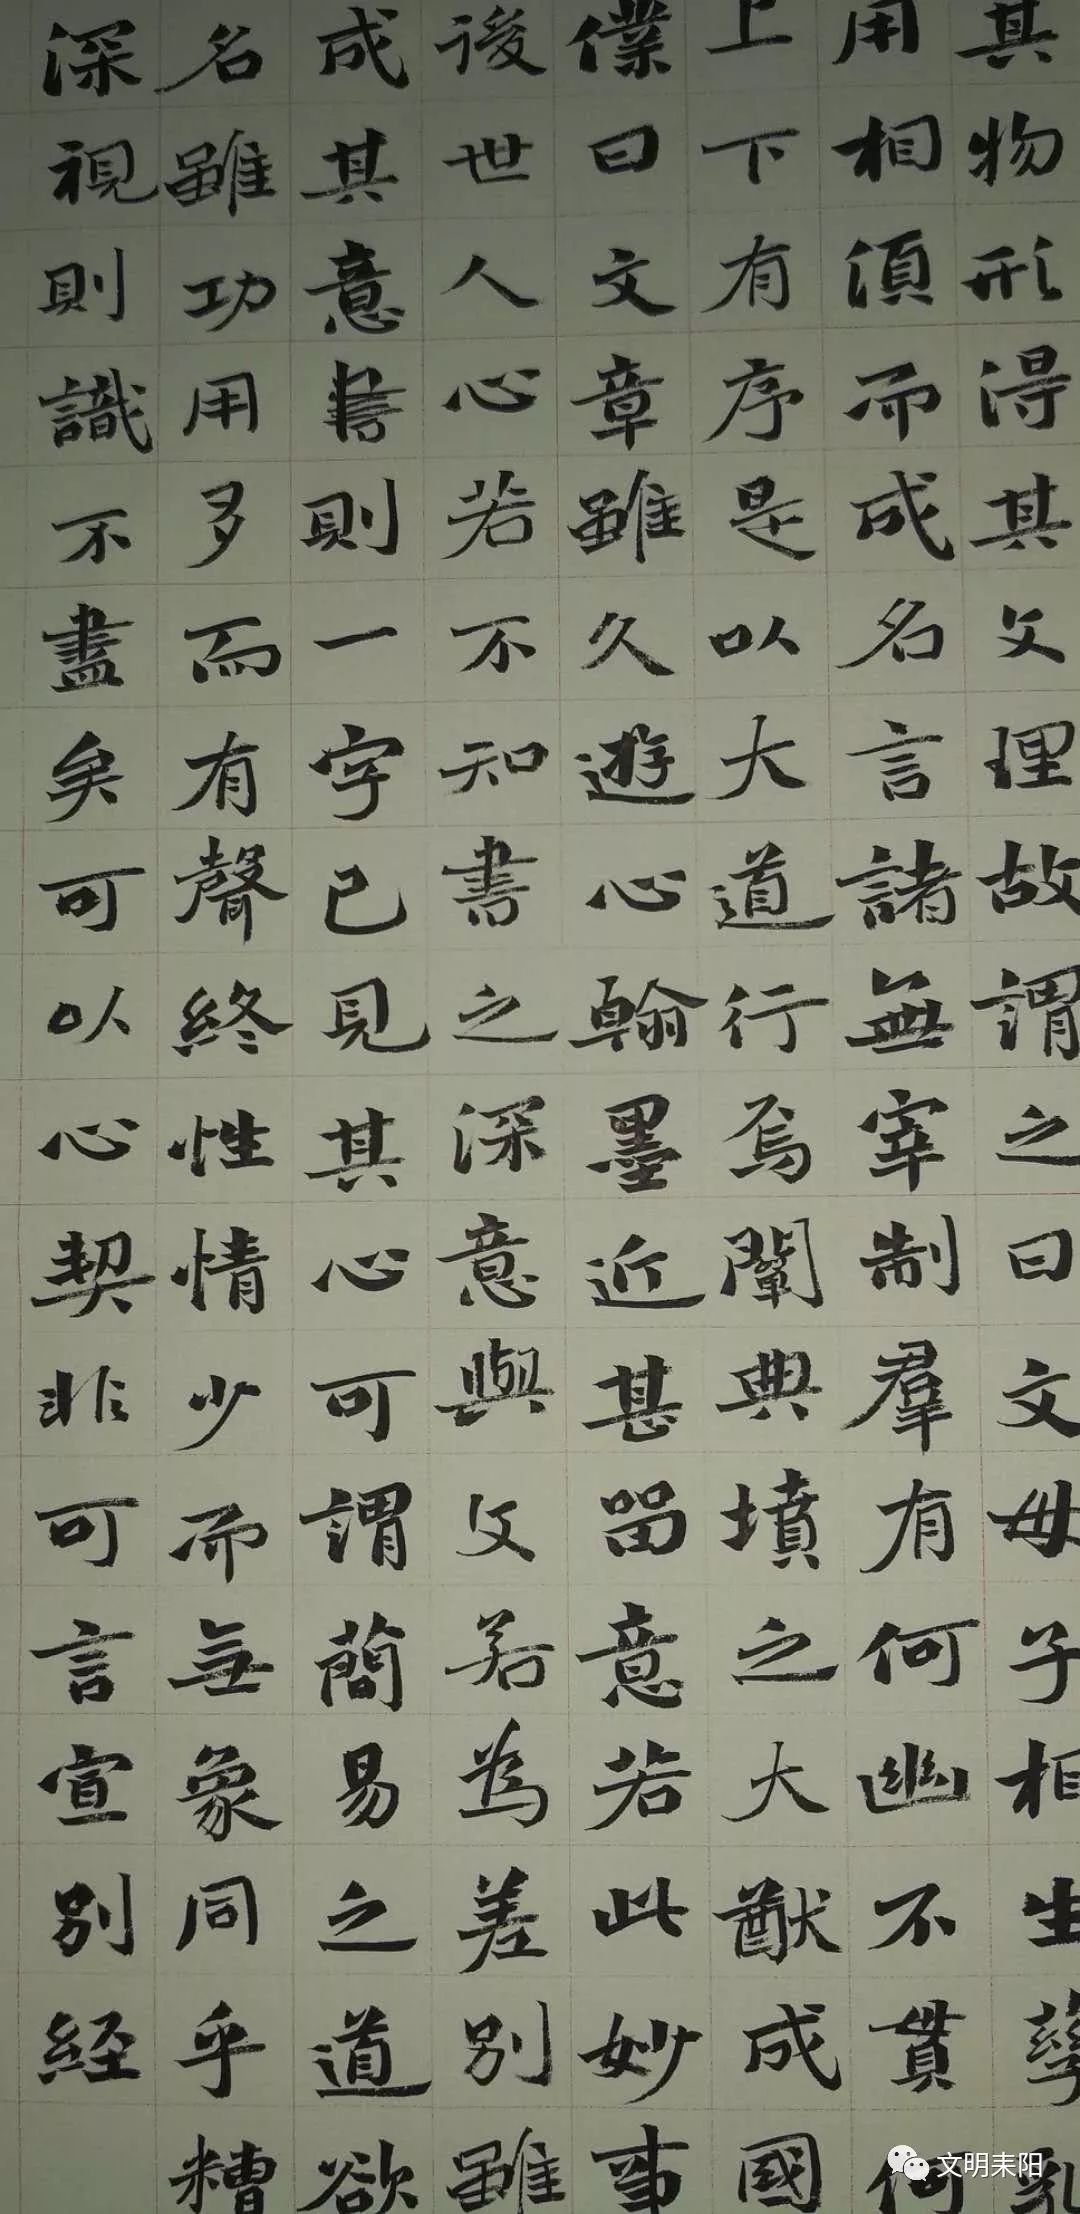 其物形得其文理故謂之曰文母子相生孳乳
用相須而成名言諸無宰制群有何幽不貫何
上下有序是以大道行焉闡典墳之大猷成國
僕曰文章雖久遊心翰墨近甚留意若此妙事
後世人心若不知書之深意與文若為差別雖
成其意書則一字已見其心可謂簡易之道欲
名雖功用多而有聲終性情少而無象同乎糟
深視則識不盡矣可以心契非可言宣別經
文明耒阳